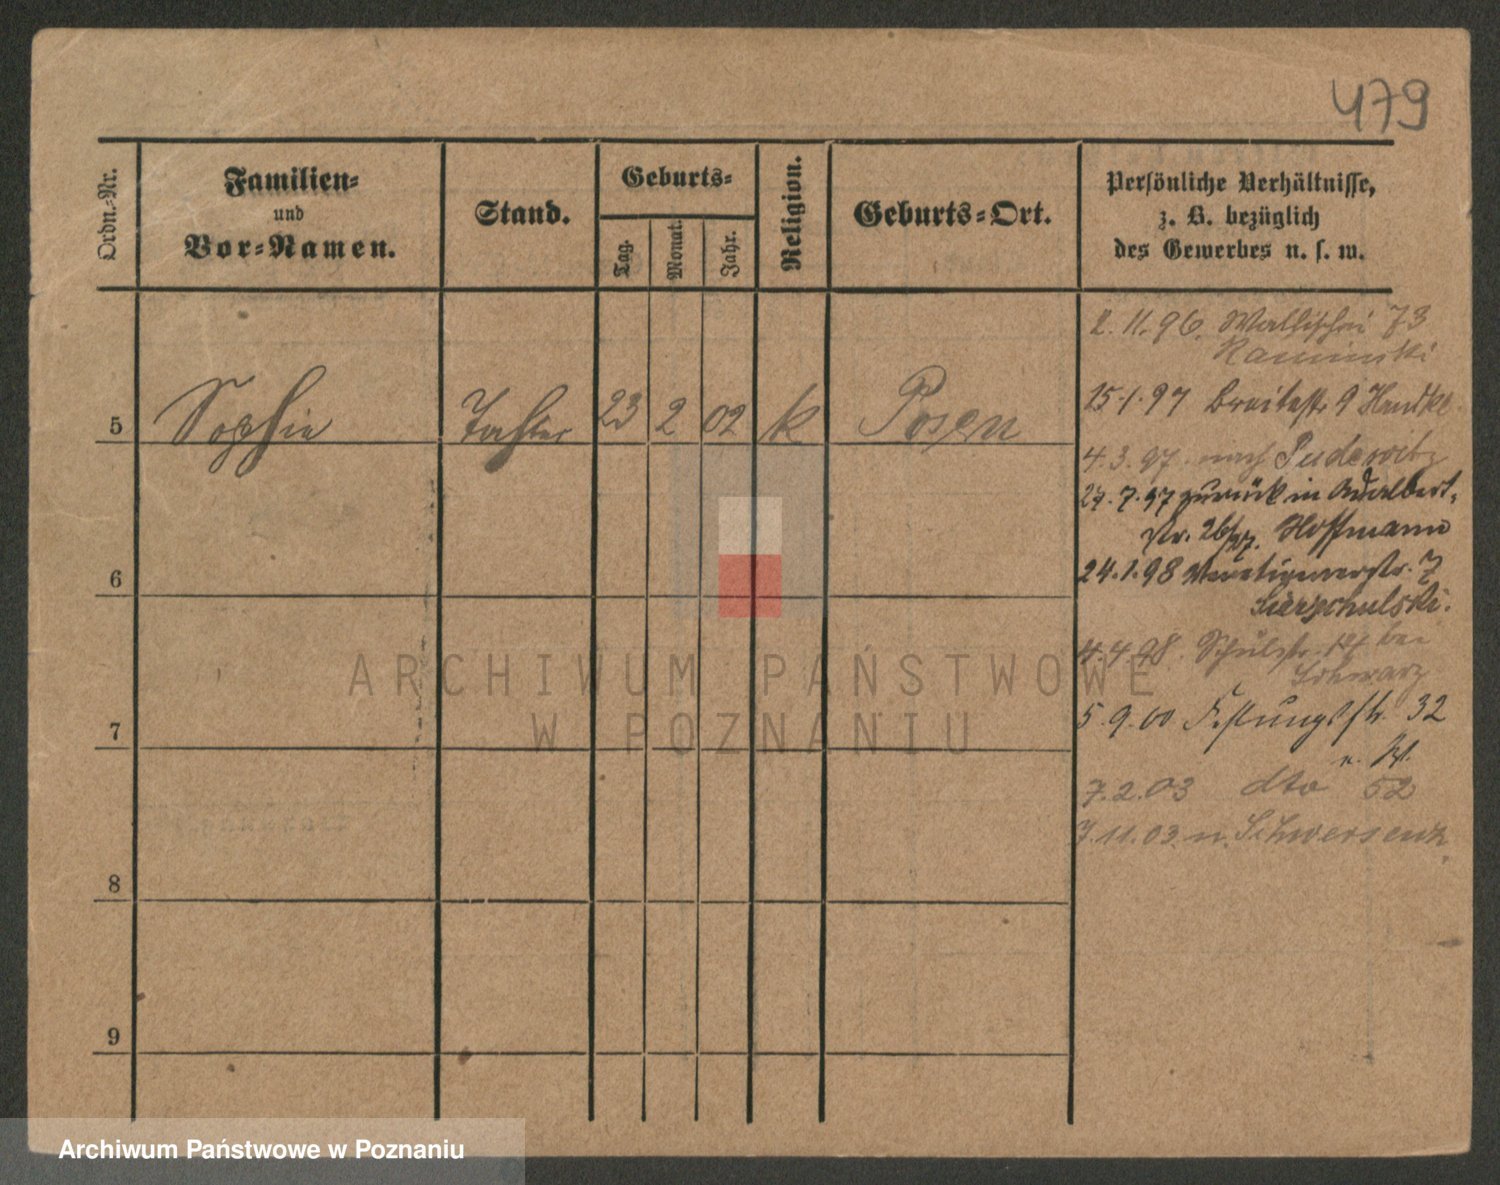 479
Ordn.-Nr.
Familien-
und
Vor-Namen.
Stand.
Geburts-
Tag.
Monat.
Jahr.
Religion.
Geburts-Ort.
Persönliche Verhältnisse,
z. B. bezüglich
des Gewerbes u. s. w.
5 Sophie Tochter 23 2 02 k Posen
6
7
8
9
2.11.96. Wallischei 73
Kaminski
15.1.97 Breitestr 9
4.3.97. nach Pudewitz
27.7.97 zurück in Adalbert-
str. Hoffmann
24.1.98 7
4.4.98. Schulstr. bei
Schwarz
5.9.00 Festungsstr. 32
7.2.03 dto 52
7.11.03 n. Schwersenz
ARCHIWUM PAŃSTWOWE
W POZNANIU
Archiwum Państwowe w Poznaniu